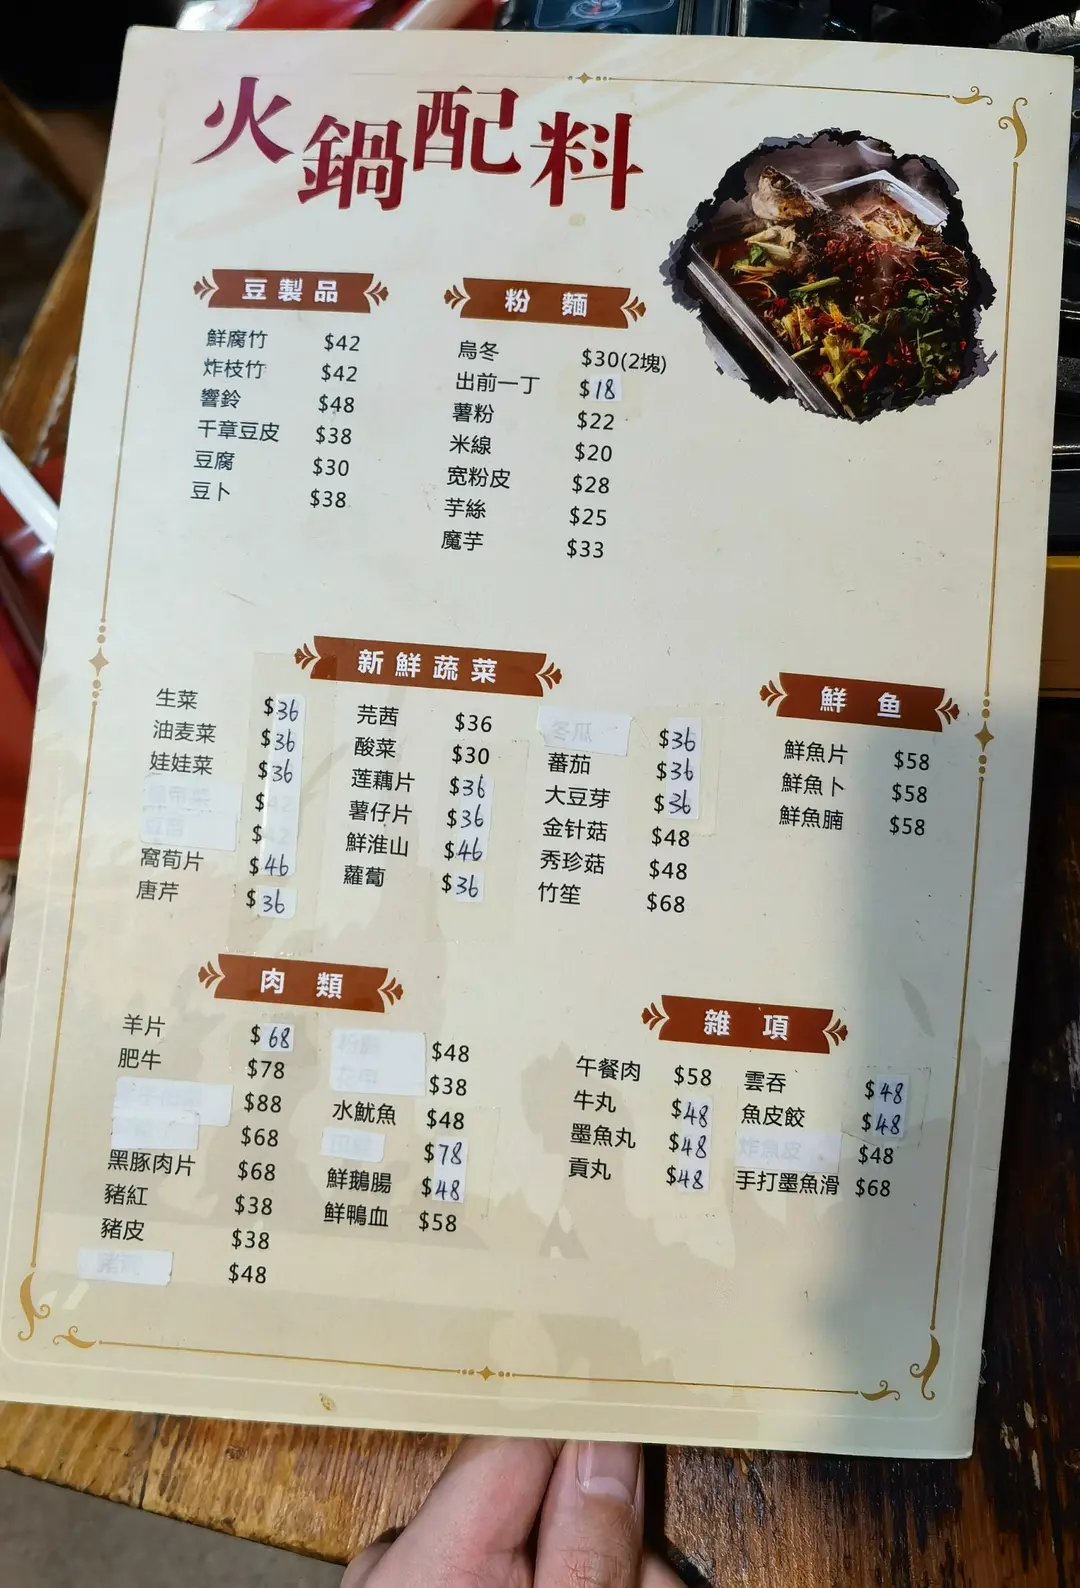 火鍋配料
豆製品
鮮腐竹 $42
炸枝竹 $42
響鈴 $48
千章豆皮 $38
豆腐 $30
豆卜 $38
粉麵
烏冬 $30(2塊)
出前一丁 $18
薯粉 $22
米線 $20
宽粉皮 $28
芋絲 $25
魔芋 $33
新鮮蔬菜
生菜 $36
油麦菜 $36
娃娃菜 $36
$42
$42
窩荀片 $46
唐芹 $36
芫茜 $36
酸菜 $30
莲藕片 $36
薯仔片 $36
鮮淮山 $46
蘿蔔 $36
冬瓜 $36
蕃茄 $36
大豆芽 $36
金针菇 $48
秀珍菇 $48
竹笙 $68
鮮鱼
鮮魚片 $58
鮮魚卜 $58
鮮魚腩 $58
肉類
羊片 $68
肥牛 $78
$88
$68
黑豚肉片 $68
豬紅 $38
豬皮 $38
$48
$48
$38
水魷魚 $48
$78
鮮鵝腸 $48
鲜鴨血 $58
雜項
午餐肉 $58
牛丸 $48
墨魚丸 $48
貢丸 $48
雲吞 $48
魚皮餃 $48
炸魚皮 $48
手打墨魚滑 $68